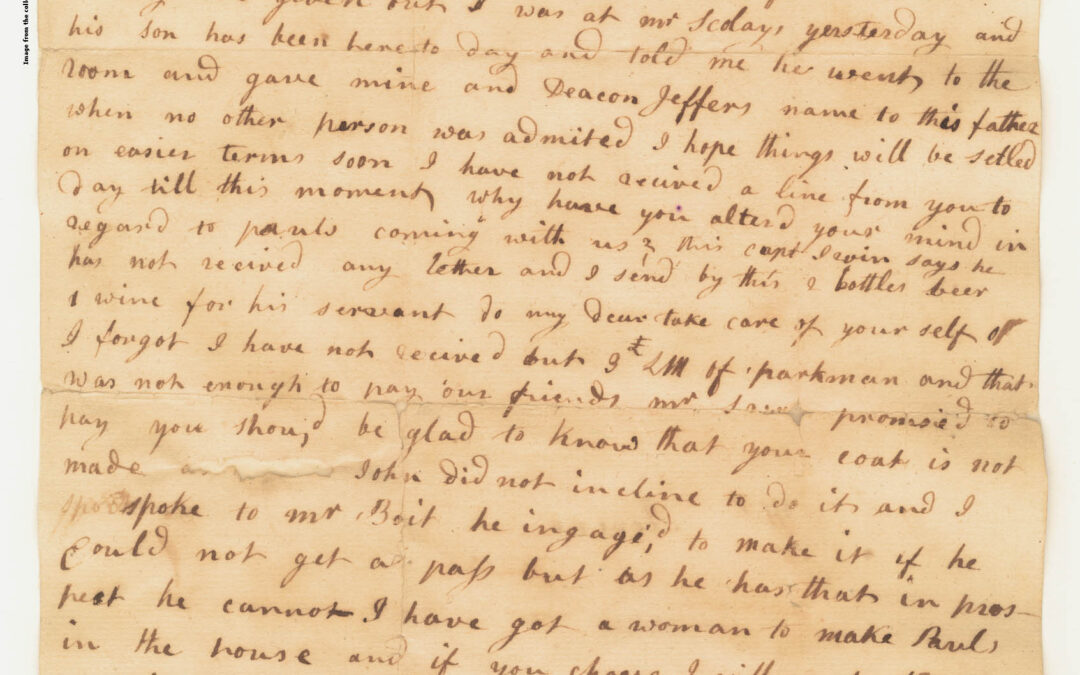 Image from the coll
given out I was at mr Scolays yersterday and
his son has been here to day and told me he went to the
room and gave mine and Deacon Jeffers name to this father
when no other person was admited I hope things will be setled
on easier terms soon I have not recived a line from you to
day till this moment why have you alterd your mind in
regard to pauls coming with us? this capt Irvin says he
has not recived any letter and I send by this 2 bottles beer
1 wine for his servant do my dear take care of your self
I forgot I have not recived but 3 of parkman and that
was not enough to pay our friends mr promised to
pay you shou,d be glad to know that your coat is not
made John did not incline to do it and I
spoke to mr Boit he ingagi,d to make it if he
Could not get a pass but as he has that in pros-
pect he cannot I have got a woman to make Pauls
in the house and if you I